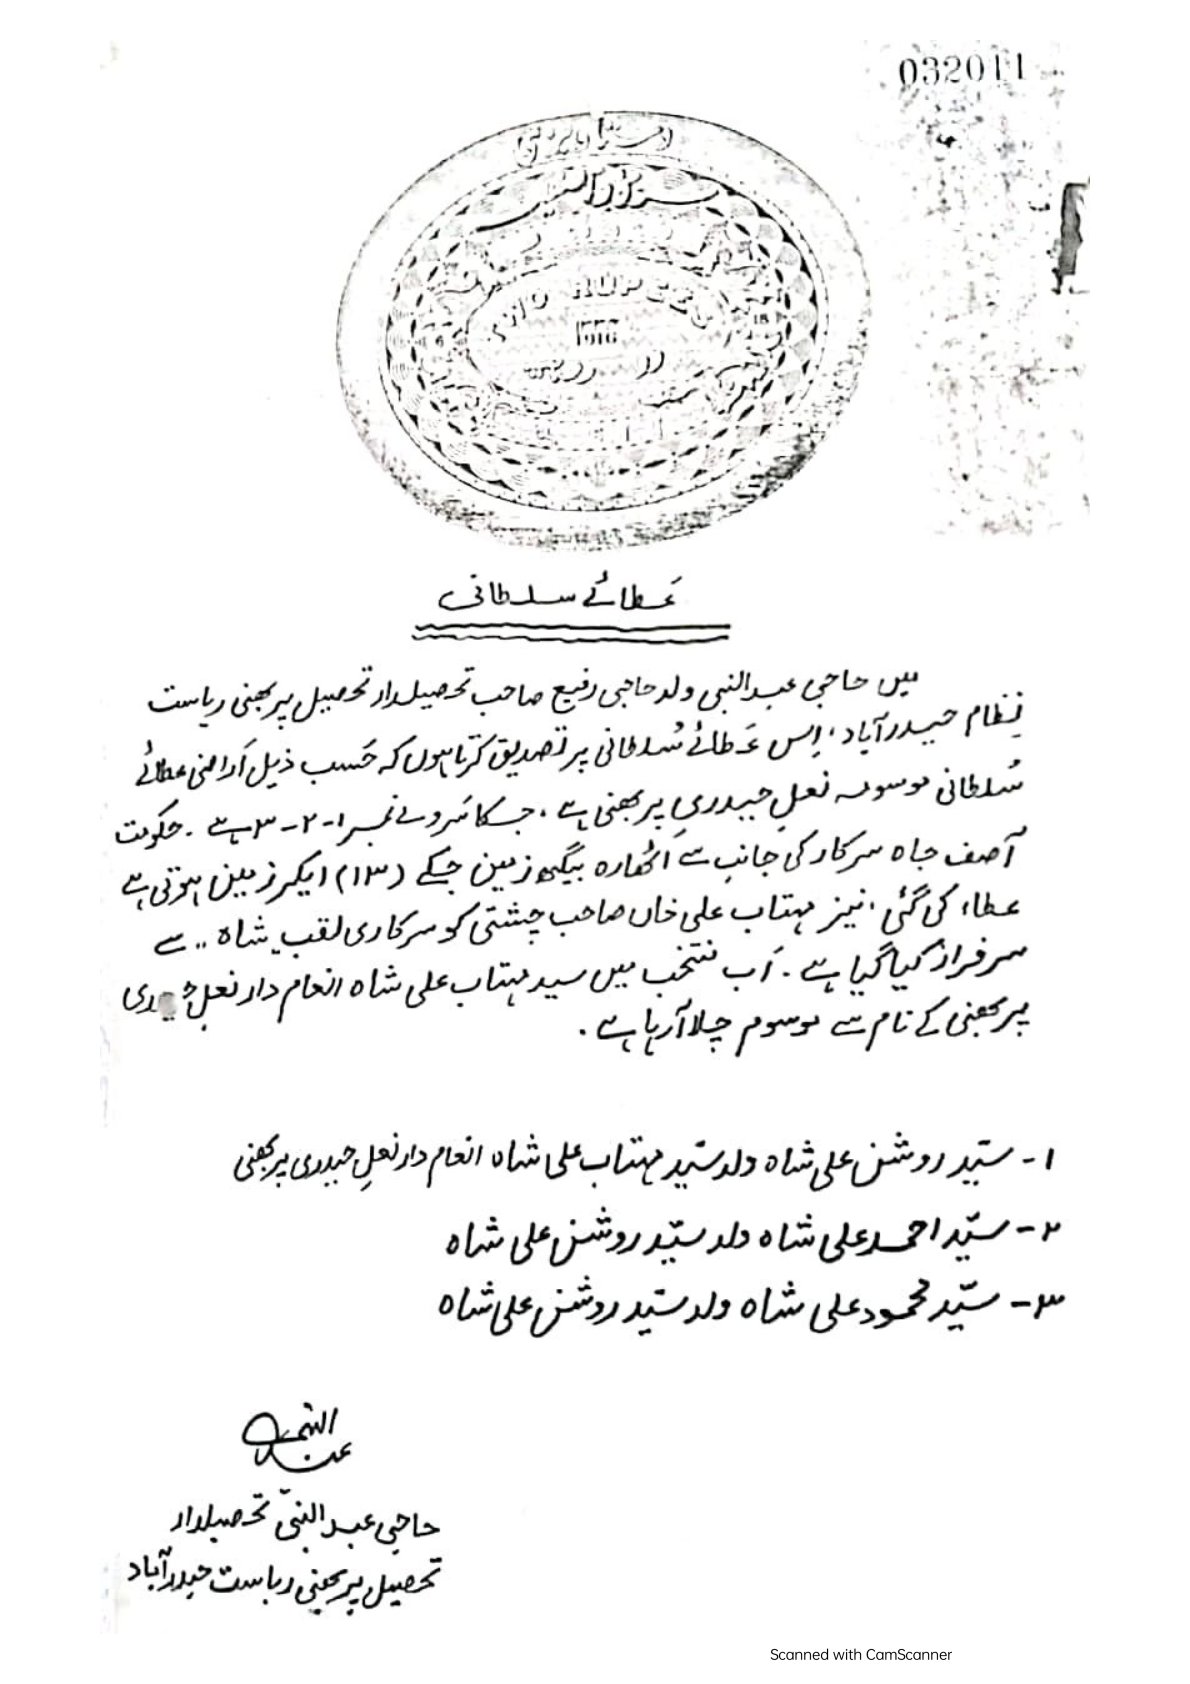 032011
TWO RUPEES
1916
دو روپیہ
عَطائے سلطانی
میں حاجی عبدالنبی ولد حاجی رفیع صاحب تحصیلدار تحصیل پربھنی ریاست
نِظام حیدرآباد، اِس عَطائے سُلطانی پر تصدیق کرتا ہوں کہ حَسب ذیل اَراضی عطائے
سُلطانی موسومہ نعلِ حیدری پربھنی ہے، جسکا سَروے نمبر ۱-۲-۳ ہے۔ حکومت
آصف جاہ سرکار کی جانب سے اٹھارہ بیگھ زمین جسکے (۱۳) ایکر زمین ہوتی ہے
عطاء کی گئی، نیز مہتاب علی خاں صاحب چشتی کو سرکاری لقب شاہ ،، سے
سرفراز کیا گیا ہے۔ اَب منتخب میں سید مہتاب علی شاہ انعام دار نعلِ حیدری
پربھنی کے نام سے موسوم چلا آرہا ہے۔
۱- سیّد روشن علی شاہ ولد سیّد مہتاب علی شاہ انعام دار نعلِ حیدری پربھنی
۲- سیّد احمد علی شاہ ولد سیّد روشن علی شاہ
۳- سیّد محمود علی شاہ ولد سیّد روشن علی شاہ
عبدالنبی
حاجی عبدالنبیّ تحصیلدار
تحصیل پربھنی ریاست حیدرآباد
Scanned with CamScanner